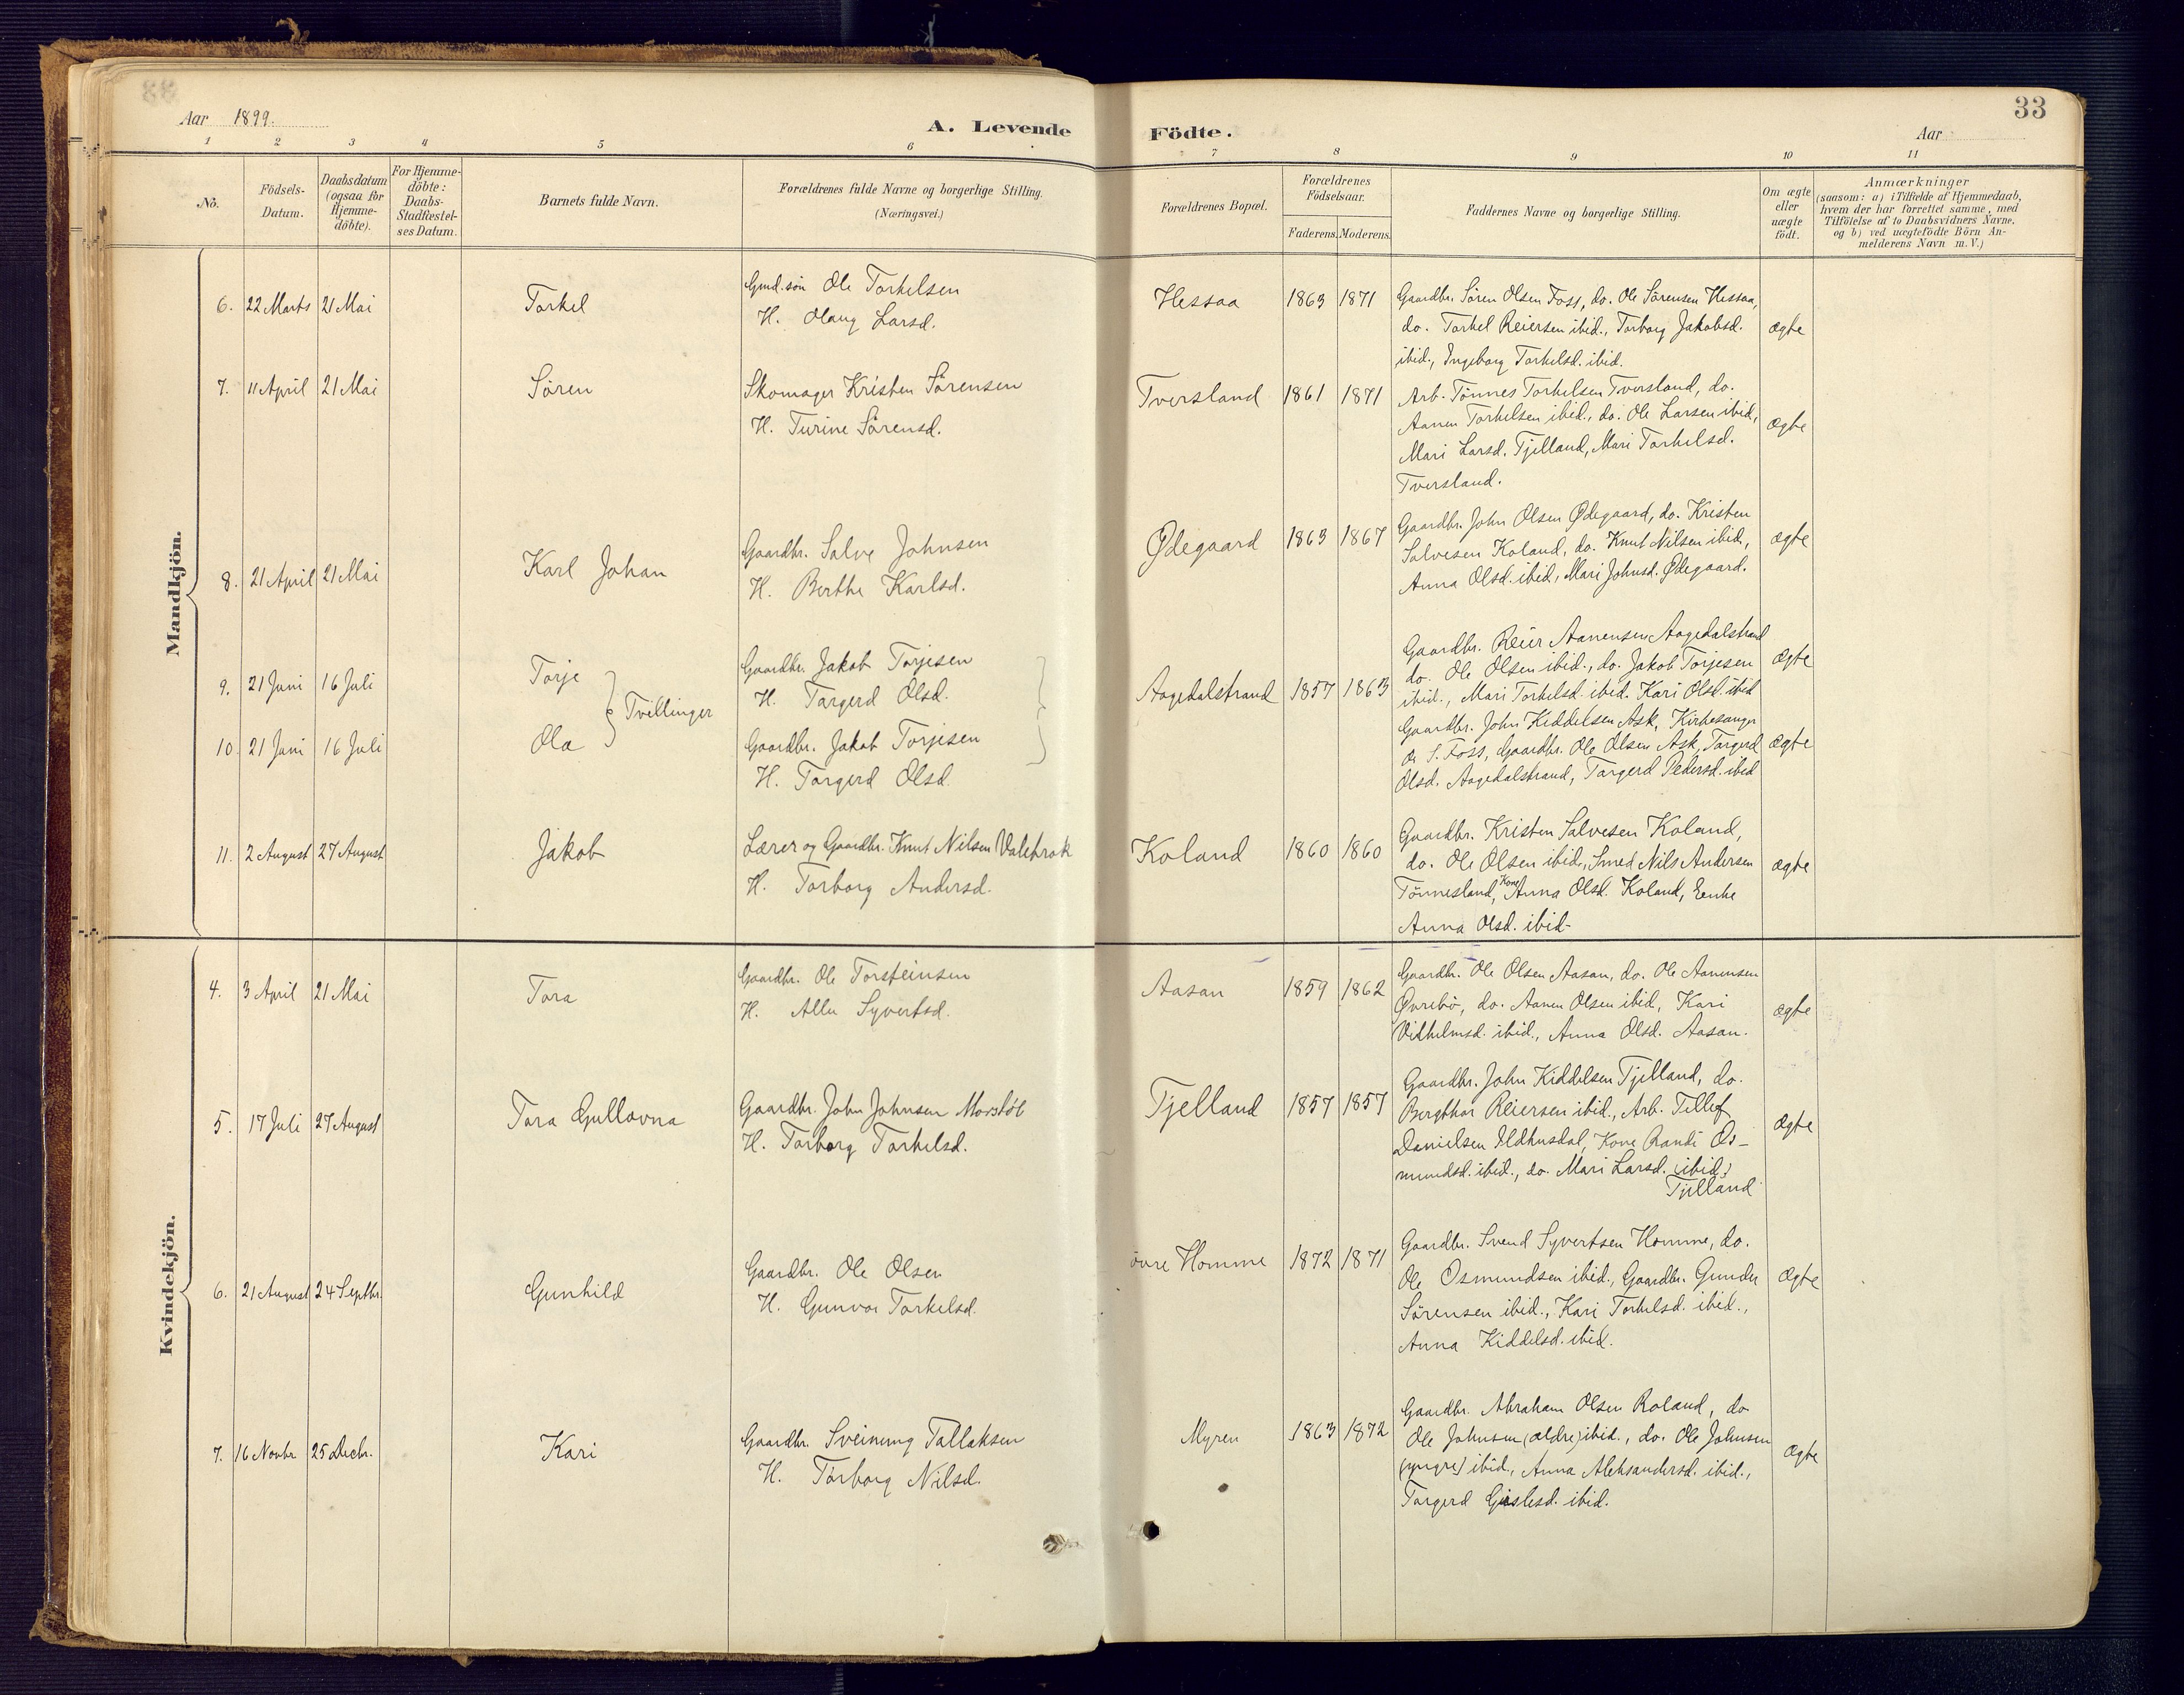 Aar 1899.
A. Levende Födte.
33
Aar
1 2 3 4 5 6 7 8 9 10 11
No.
Födsels-Datum.
Daabsdatum (ogsaa for Hjemme-döbte).
For Hjemme-döbte: Daabs-Stadfæstel-ses Datum.
Barnets fulde Navn.
Forældrenes fulde Navne og borgerlige Stilling.
(Næringsvei.)
Forældrenes Bopæl.
Forældrenes Födselsaar.
Faderens. Moderens.
Faddernes Navne og borgerlige Stilling.
Om ægte eller uægte födt.
Anmærkninger
(saasom: a) i Tilfælde af Hjemmedaab,
hvem der har forrettet samme, med
Tilföielse af to Daabsvidners Navne.
og b) ved uægtefödte Börn An-
melderens Navn m. V.)
Mandkjön.
6. 22 Marts 21 Mai Torkel
Gmd.søn Ole Torkelsen
H. Olaug Larsd.
Hessaa 1863 1871
Gaardbr. Sören Olsen Foss, do. Ole Sörensen Hessaa,
do. Torkel Reiersen ibid., Torborg Jakobsd.
ibid., Ingeborg Torkelsd. ibid.
ægte
7. 11 April 21 Mai Sören
Skomager Kristen Sörensen
H. Turine Sörensd.
Tversland 1861 1871
Arb. Tönnes Torkelsen Tversland, do.
Aanen Torkelsen ibid., do. Ole Larsen ibid,
Mari Larsd. Tjelland, Mari Torkelsd.
Tversland.
ægte
8. 21 April 21 Mai Karl Johan
Gaardbr. Salve Johnsen
H. Berthe Karlsd.
Ødegaard 1863 1867
Gaardbr. John Olsen Ødegaard, do. Kristen
Salvesen Koland, do. Knut Nilsen ibid,
Anna Olsd. ibid, Mari Johnsd. Ødegaard.
ægte
9. 21 Juni 16 Juli Torje
Tvillinger
Gaardbr. Jakob Torjesen
H. Torgerd Olsd.
Aagedalstrand 1857 1863
Gaardbr. Reier Aanensen Aagedalstrand
do. Ole Olsen ibid., do. Jakob Torjesen
ibid., Mari Torkelsd. ibid. Kari Olsd. ibid
ægte
10. 21 Juni 16 Juli Ola
Gaardbr. Jakob Torjesen
H. Torgerd Olsd
Gaardbr. John Kiddelsen Ask, Kirkesanger
O. S. Foss, Gaardbr. Ole Olsen Ask, Torgerd
Olsd. Aagedalstrand, Torgerd Pedersd. ibid
ægte
11. 2 August 27 August Jakob
Lærer og Gaardbr. Knut Nilsen Valebrok
H. Torborg Andersd.
Koland 1860 1860
Gaardbr. Kristen Salvesen Koland,
do. Ole Olsen ibid., Smed Nils Andersen
Tönnesland, Kone Anna Olsd. Koland, Enke
Anna Olsd. ibid.
ægte
Kvindekjön.
4. 3 April 21 Mai Tora
Gaardbr. Ole Torsteinsen
H. Allu Syvertsd.
Aasan 1859 1862
Gaardbr. Ole Olsen Aasan, do. Ole Aanensen
Øvrebö, do. Aanen Olsen ibid, Kari
Vilhelmsd. ibid., Anna Olsd. Aasan.
ægte
5. 17 Juli 27 August Tora Gullovna
Gaardbr. John Johnsen Monstöl
H. Torborg Torkelsd.
Tjelland 1857 1857
Gaardbr. John Kiddelsen Tjelland, do.
Bergthor Reiersen ibid., Arb. Tellef
Danielsen Ildhusdal, Kone Randi Os-
mundsd. ibid., do. Mari Larsd. (ibid.)
Tjelland
ægte
6. 21 August 24 Septbr. Gunhild
Gaardbr. Ole Olsen
H. Gunvor Torkelsd.
övre Homme 1872 1871
Gaardbr. Svend Syvertsen Homme, do.
Ole Osmundsen ibid., Gaardbr. Gunder
Sörensen ibid., Kari Torkelsd. ibid.,
Anna Kiddelsd. ibid.
ægte
7. 16 Novbr 25 Decbr. Kari
Gaardbr. Sveinung Tallaksen
H. Torborg Nilsd.
Myren 1863 1872
Gaardbr. Abraham Olsen Roland, do
Ole Johnsen (ældre) ibid., do. Ole Johnsen
(yngre) ibid., Anna Aleksandersd. ibid.,
Torgerd Gieslesd. ibid.
ægte